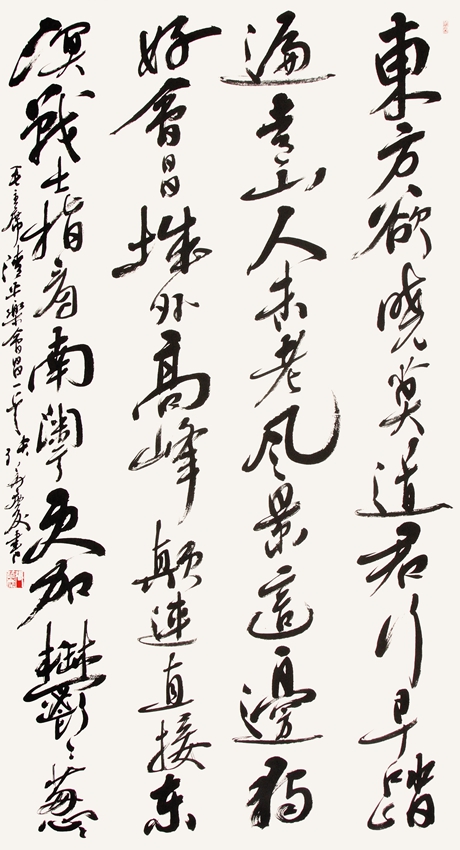 東方欲曉莫道君行早踏
遍青山人未老风景這邊独
好會昌城外高峰顛連直接东
溟戰士指看南粤更加鬱々葱
毛主席清平樂會昌一首 書